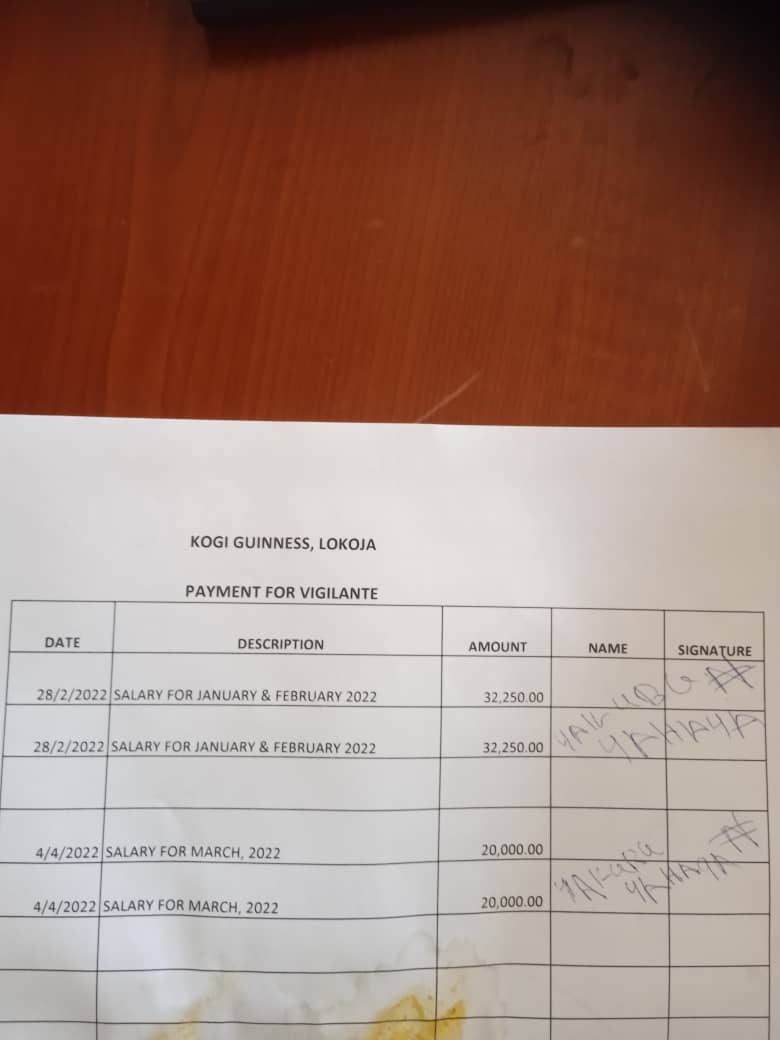 KOGI GUINNESS, LOKOJA
PAYMENT FOR VIGILANTE
DATE DESCRIPTION AMOUNT NAME SIGNATURE
28/2/2022 SALARY FOR JANUARY & FEBRUARY 2022 32,250.00
28/2/2022 SALARY FOR JANUARY & FEBRUARY 2022 32,250.00 YAHAYA
4/4/2022 SALARY FOR MARCH, 2022 20,000.00
4/4/2022 SALARY FOR MARCH, 2022 20,000.00 YAHAYA